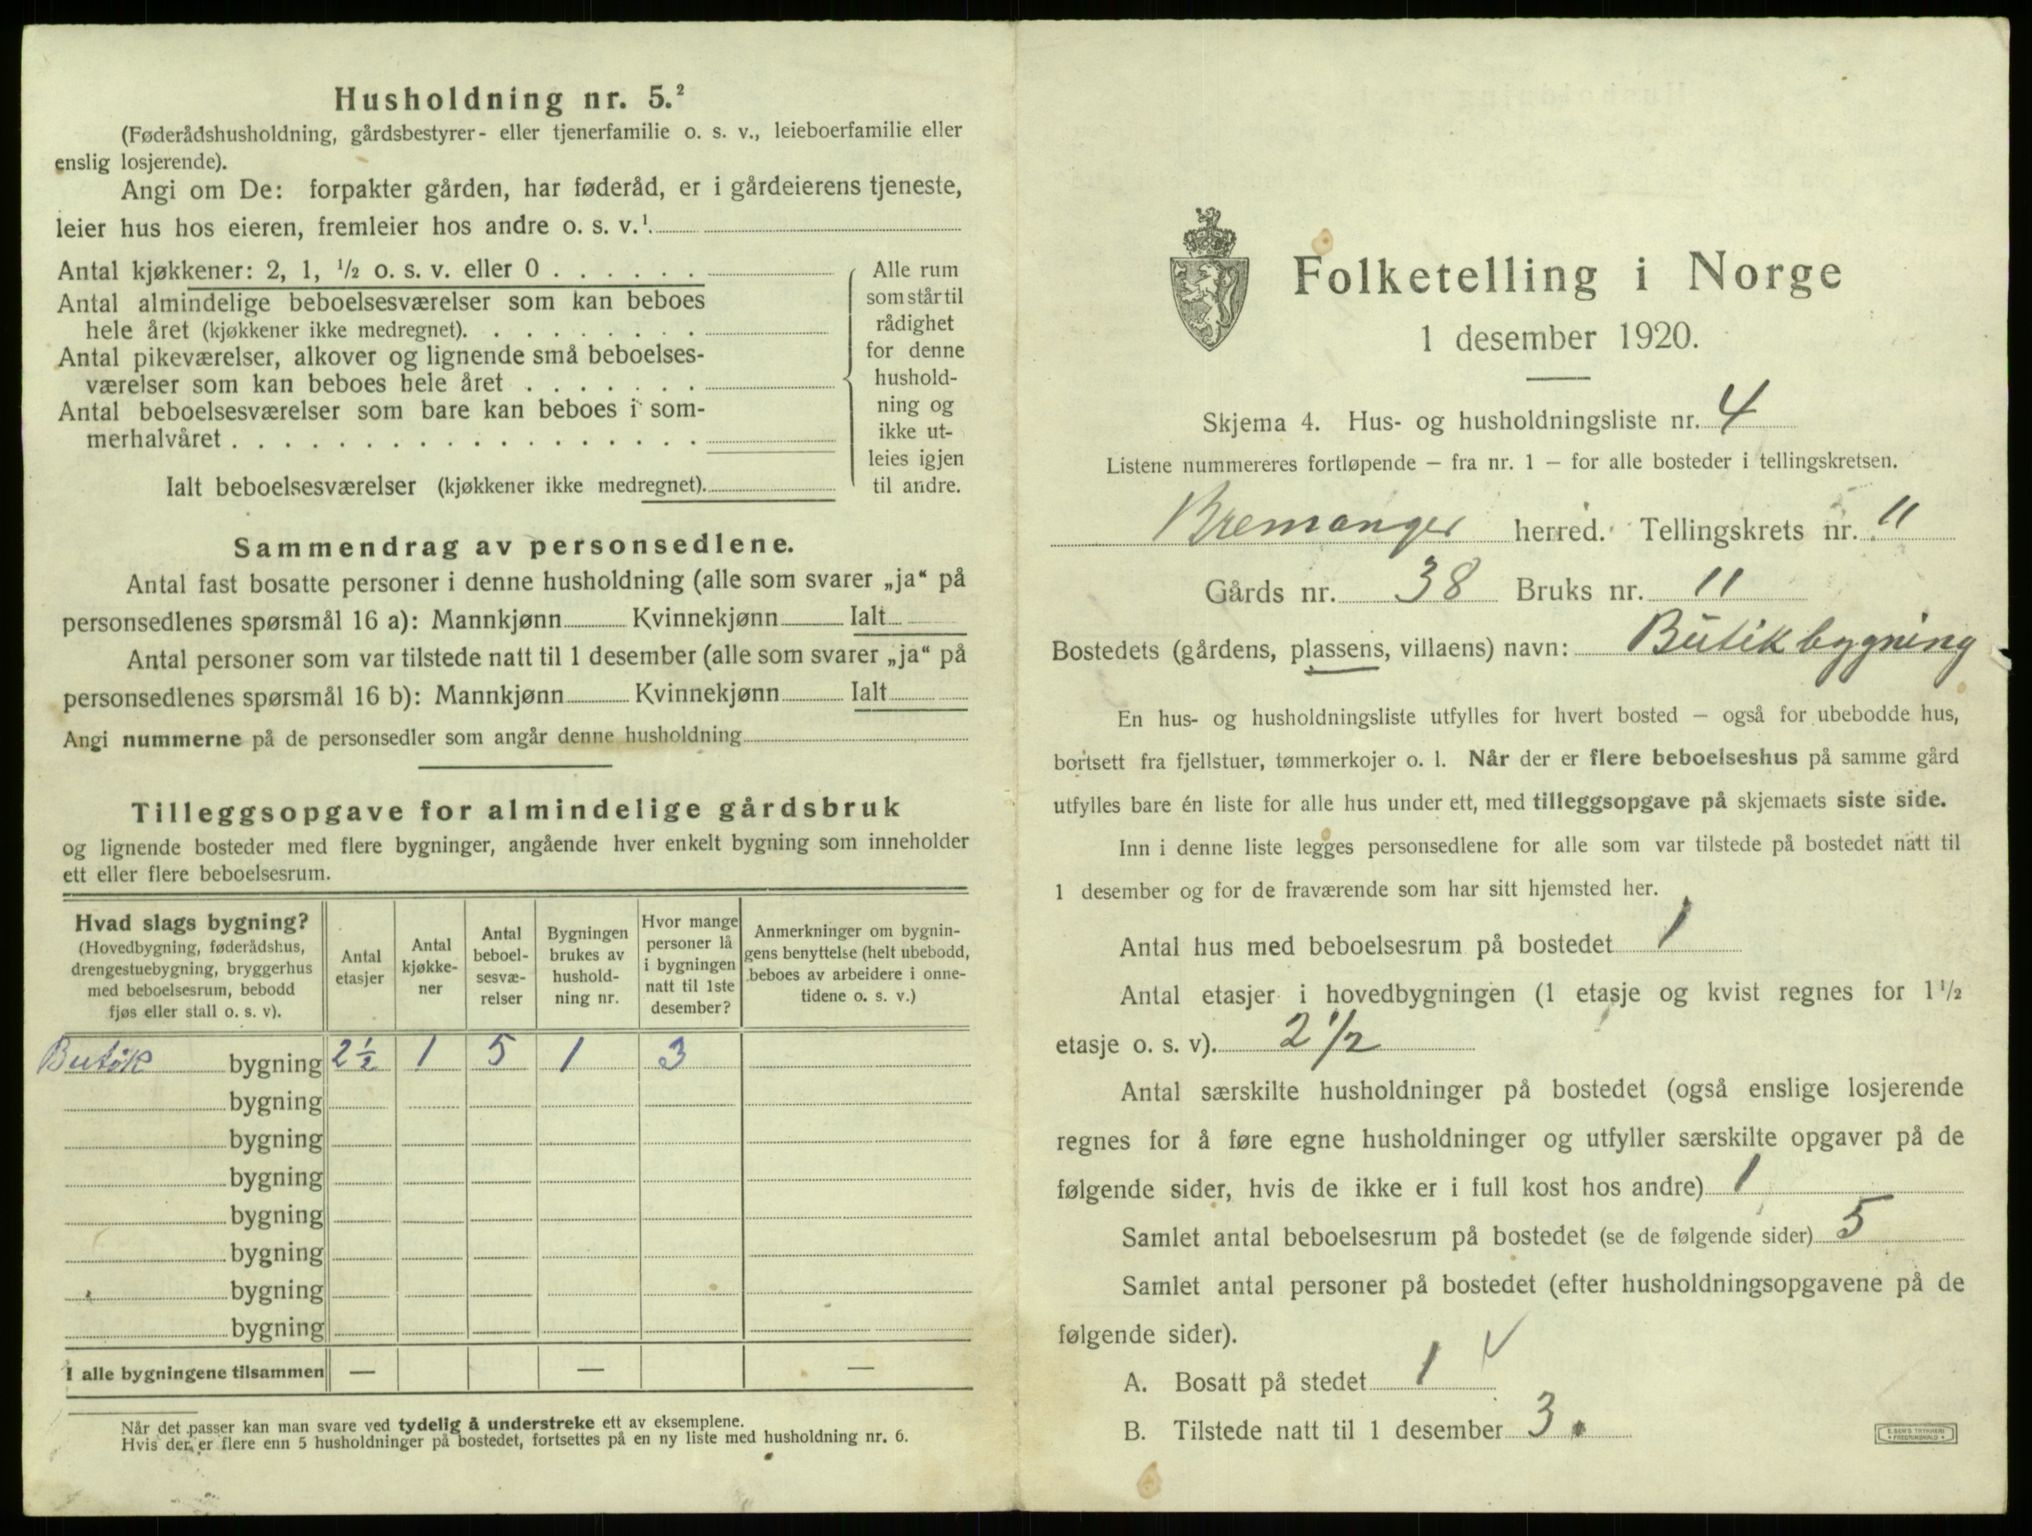 Husholdning nr. 5.²
(Føderådshusholdning, gårdsbestyrer- eller tjenerfamilie o. s. v., leieboerfamilie eller
enslig losjerende).
Angi om De: forpakter gården, har føderåd, er i gårdeierens tjeneste,
leier hus hos eieren, fremleier hos andre o. s. v.¹
Antal kjøkkener: 2, 1, ½ o. s. v. eller 0
Antal almindelige beboelsesværelser som kan beboes
hele året (kjøkkener ikke medregnet).
Antal pikeværelser, alkover og lignende små beboelses-
værelser som kan beboes hele året
Antal beboelsesværelser som bare kan beboes i som-
merhalvåret
Ialt beboelsesværelser (kjøkkener ikke medregnet).
Alle rum
som står til
rådighet
for denne
hushold-
ning og
ikke ut-
leies igjen
til andre.
Sammendrag av personsedlene.
Antal fast bosatte personer i denne husholdning (alle som svarer „ja“ på
personsedlenes spørsmål 16 a): Mannkjønn Kvinnekjønn Ialt
Antal personer som var tilstede natt til 1 desember (alle som svarer „ja“ på
personsedlenes spørsmål 16 b): Mannkjønn Kvinnekjønn Ialt
Angi nummerne på de personsedler som angår denne husholdning
Tilleggsopgave for almindelige gårdsbruk
og lignende bosteder med flere bygninger, angående hver enkelt bygning som inneholder
ett eller flere beboelsesrum.
Hvad slags bygning?
(Hovedbygning, føderådshus,
drengestuebygning, bryggerhus
med beboelsesrum, bebodd
fjøs eller stall o. s. v).
Antal
etasjer
Antal
kjøkke-
ner
Antal
beboel-
sesvæ-
relser
Bygningen
brukes av
hushold-
ning nr.
Hvor mange
personer lå
i bygningen
natt til 1ste
desember?
Anmerkninger om bygnin-
gens benyttelse (helt ubebodd,
beboes av arbeidere i onne-
tidene o. s. v.)
Butik bygning 2 ½ 1 5 1 3
bygning
bygning
bygning
bygning
bygning
bygning
bygning
I alle bygningene tilsammen — — —
Når det passer kan man svare ved tydelig å understreke ett av eksemplene.
Hvis der er flere enn 5 husholdninger på bostedet, fortsettes på en ny liste med husholdning nr. 6.
Folketelling i Norge
1 desember 1920.
Skjema 4. Hus- og husholdningsliste nr. 4
Listene nummereres fortløpende – fra nr. 1 – for alle bosteder i tellingskretsen.
Bremanger herred. Tellingskrets nr. 11
Gårds nr. 38 Bruks nr. 11
Bostedets (gårdens, plassens, villaens) navn: Butikbygning
En hus- og husholdningsliste utfylles for hvert bosted – også for ubebodde hus,
bortsett fra fjellstuer, tømmerkojer o. l. Når der er flere beboelseshus på samme gård
utfylles bare én liste for alle hus under ett, med tilleggsopgave på skjemaets siste side.
Inn i denne liste legges personsedlene for alle som var tilstede på bostedet natt til
1 desember og for de fraværende som har sitt hjemsted her.
Antal hus med beboelsesrum på bostedet 1
Antal etasjer i hovedbygningen (1 etasje og kvist regnes for 1 ½
etasje o. s. v). 2 1/2
Antal særskilte husholdninger på bostedet (også enslige losjerende
regnes for å føre egne husholdninger og utfyller særskilte opgaver på de
følgende sider, hvis de ikke er i full kost hos andre) 1
Samlet antal beboelsesrum på bostedet (se de følgende sider) 5
Samlet antal personer på bostedet (efter husholdningsopgavene på de
følgende sider).
A. Bosatt på stedet 1 ✓
B. Tilstede natt til 1 desember 3.